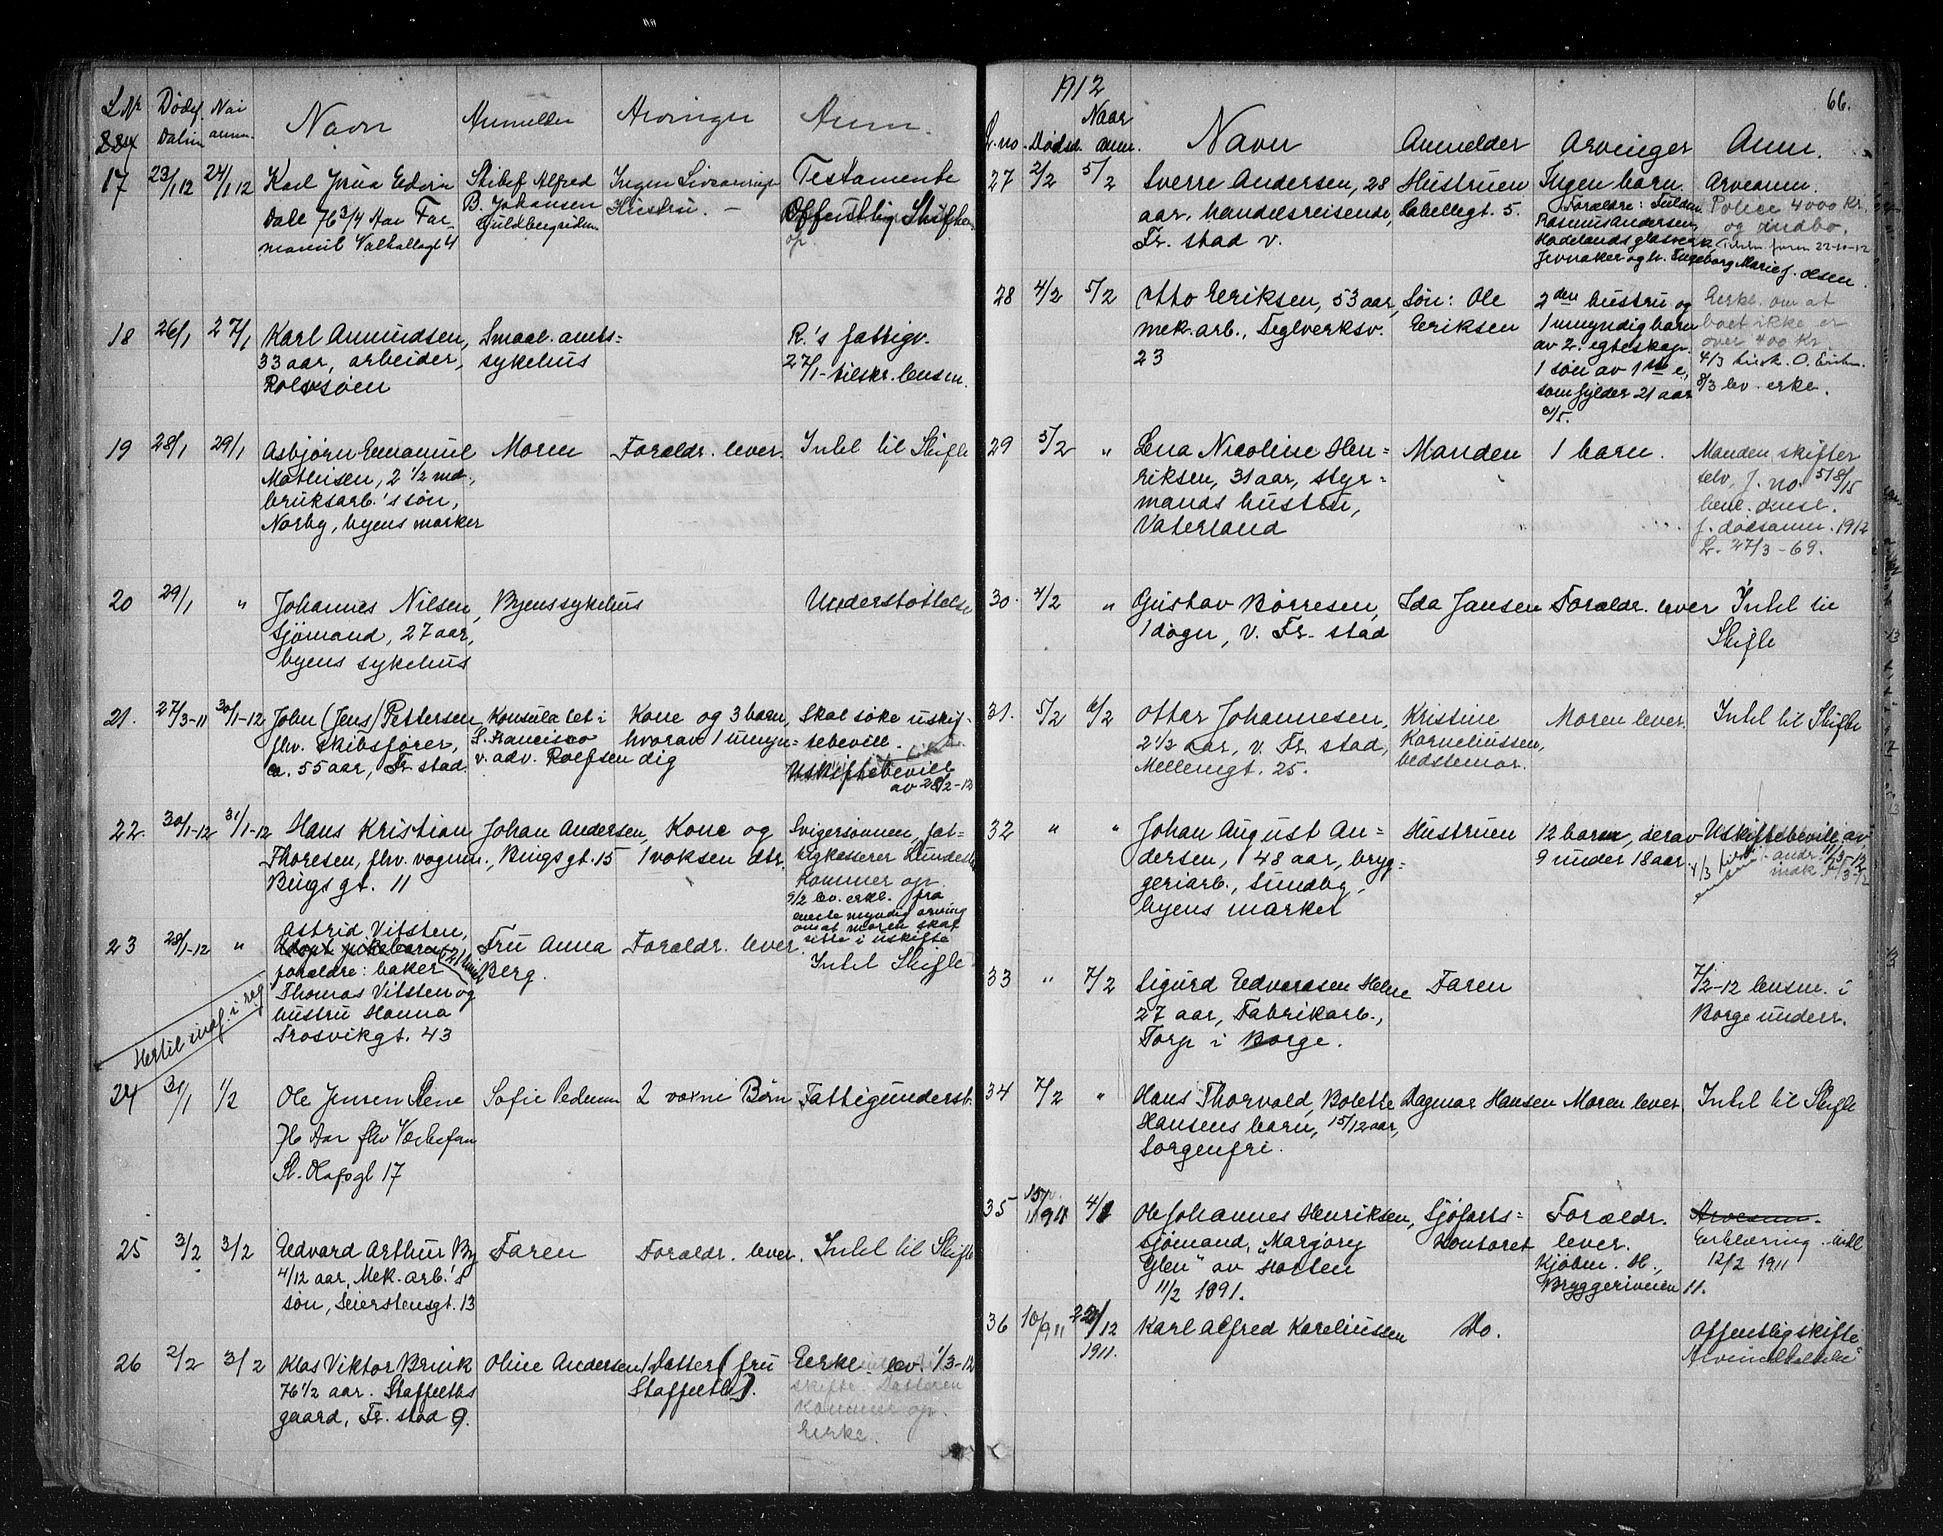 L.Nr Dødsf. Naar
Dalin anm. Navn Anmelder Arvinger Anm.
17 23/1 12 24/1 12 Karl Edvin
Dall 76 3/4 Aar For-
mand Valhallagt 4
Alfred
B. Johansen
Ingen Livsarvinger
Hustru. —
Testamente
Offentlig Skifte
op.
18 26/1 27/1 Karl Amundsen,
33 aar, arbeider,
Rolvsøen
Smaal. amts=
sykehus
R.'s fattigv.
27/1 - tilskr. lensm.
19 28/1 29/1 Asbjørn Emanuel
Mathisen, 2 1/2 md.,
bruksarb.'s søn,
Norby, byens marker
Moren
Forældr. lever.
Intet til Skifte
20 29/1 " Johannes Nilsen,
sjømand, 27 aar,
byens sykehus
Byens sykehus
Understøttelse
21. 27/3-11 30/1-12 John (Jens) Pettersen
fhv. skibsfører,
ca. 55 aar, Fr. stad.
Konsulatet i
S. Francisco
v. adv. Rolfsen
Kone og 3 barn,
hvorav 1 umyn=
dig
Skal søke uskif-
tebevill.
Uskiftebevill
av 28/2-12
22. 30/1-12 31/1-12 Hans Kristian
Thoresen, fhv. vognm.,
Bings gt. 11
Johan Andersen,
Bings gt. 15
Kone og
1 voksen dtr.
Svigersønnen, fat-
tigkasserer Lunde
kommer op.
9/2 lev. erkl. fra
eneste myndig arving
om at moren skal
sitte i uskifte
23 28/1-12 " Astrid Vitsten,
forældre: baker
Thomas Vitsten og
hustru Hanna
Trosvikgt. 43
Fru Anna
Berg.
Forældr. lever.
Intet Skifte
Hertil indf. i reg
24 31/1 1/2 Ole Jensen Lene
76 Aar fhv
St. Olafsgt 17
Sofie Pedersen
2 voxne Børn
Fattigunderst.
25 3/2 3/2 Edvard Arthur By
4/12 aar, Mek. arb.'s
søn, Seierstensgt. 13
Faren
Forældr. lever.
Intet til Skifte
26 2/2 3/2 Klas Viktor Brink
76 1/2 aar. Staffeldts
gaard, Fr. stad Ø.
Oline Andersen
1 Datter (fru
Staffeldt).
Erkl. lev. 1/3-12
skifte. Datteren
kommer op.
Erkl.
1912
66.
L.no. Dødsd. Naar anm. Navn Anmelder Arvinger Anm.
27 2/2 5/2 Sverre Andersen, 28
aar, handelsreisende,
Fr. stad v.
Hustruen
Cabellegt. 5.
Ingen barn.
Forældre:
Rasmus Andersen,
Hadelands glasverk,
Jevnaker og h. Ingeborg Marie f. Olsen
Arveanm.
Police 4000 Kr.
og indbo.
22-10-12
28 4/2 5/2 Otto Eriksen, 53 aar,
mek. arb., Teglverksv.
23
Søn: Ole
Eriksen
2den hustru og
1 umyndig barn
av 2. egteskap.
1 søn av 1ste e,
som fylder 21 aar
31/5.
Erkl. om at
boet ikke er
over 400 Kr.
4/3 tilsk. O. Eriksen
8/3 lev. erkl.
29 5/2 " Lena Nicoline Hen=
riksen, 31 aar, styr=
mands hustru,
Vaterland
Manden
1 barn.
Manden skifter
selv, J. no. 518/15
f. dødsanm. 1912
L. 27/3-69.
30. 4/2 " Gustav Børresen,
1 døgn, v. Fr. stad
Ida Jansen
Forældr. lever
Intet til
Skifte
31. 5/2 6/2 Ottar Johannesen,
2 1/3 aar, v. Fr. stad,
Mellemgt. 25.
Kristine
Korneliussen,
bedstemor.
Moren lever.
Intet til Skifte
32 " " Johan August An=
dersen, 48 aar, bryg=
geriarb., Sundby,
byens marker
Hustruen
12 barn, derav
9 under 18 aar
Uskiftebevill. av
33 " 7/2 Sigurd Edvardsen Helne
27 aar, Fabrikarb.,
Torp i Borge.
Faren
7/2-12 lensm. i
Borge underr.
34 7/2 " Hans Thorvald, Bolette
Hansens barn, 15/12 aar,
Sorgenfri.
Dagmar Hansen
Moren lever.
Intet til Skifte
35 1911 4/1 Ole Johannes Henriksen,
sjømand, "Marjory
Glen" av Horten
11/2 1891.
Sjøfarts=
kontoret
Forældr.
lever.
Kjøben. H.,
Bryggeriveien 11.
Arveanm.
Erklæring indl
12/2 1911
36 10/9 11 22/12
1911. Karl Alfred Koreliussen
Do.
Offentlig skifte